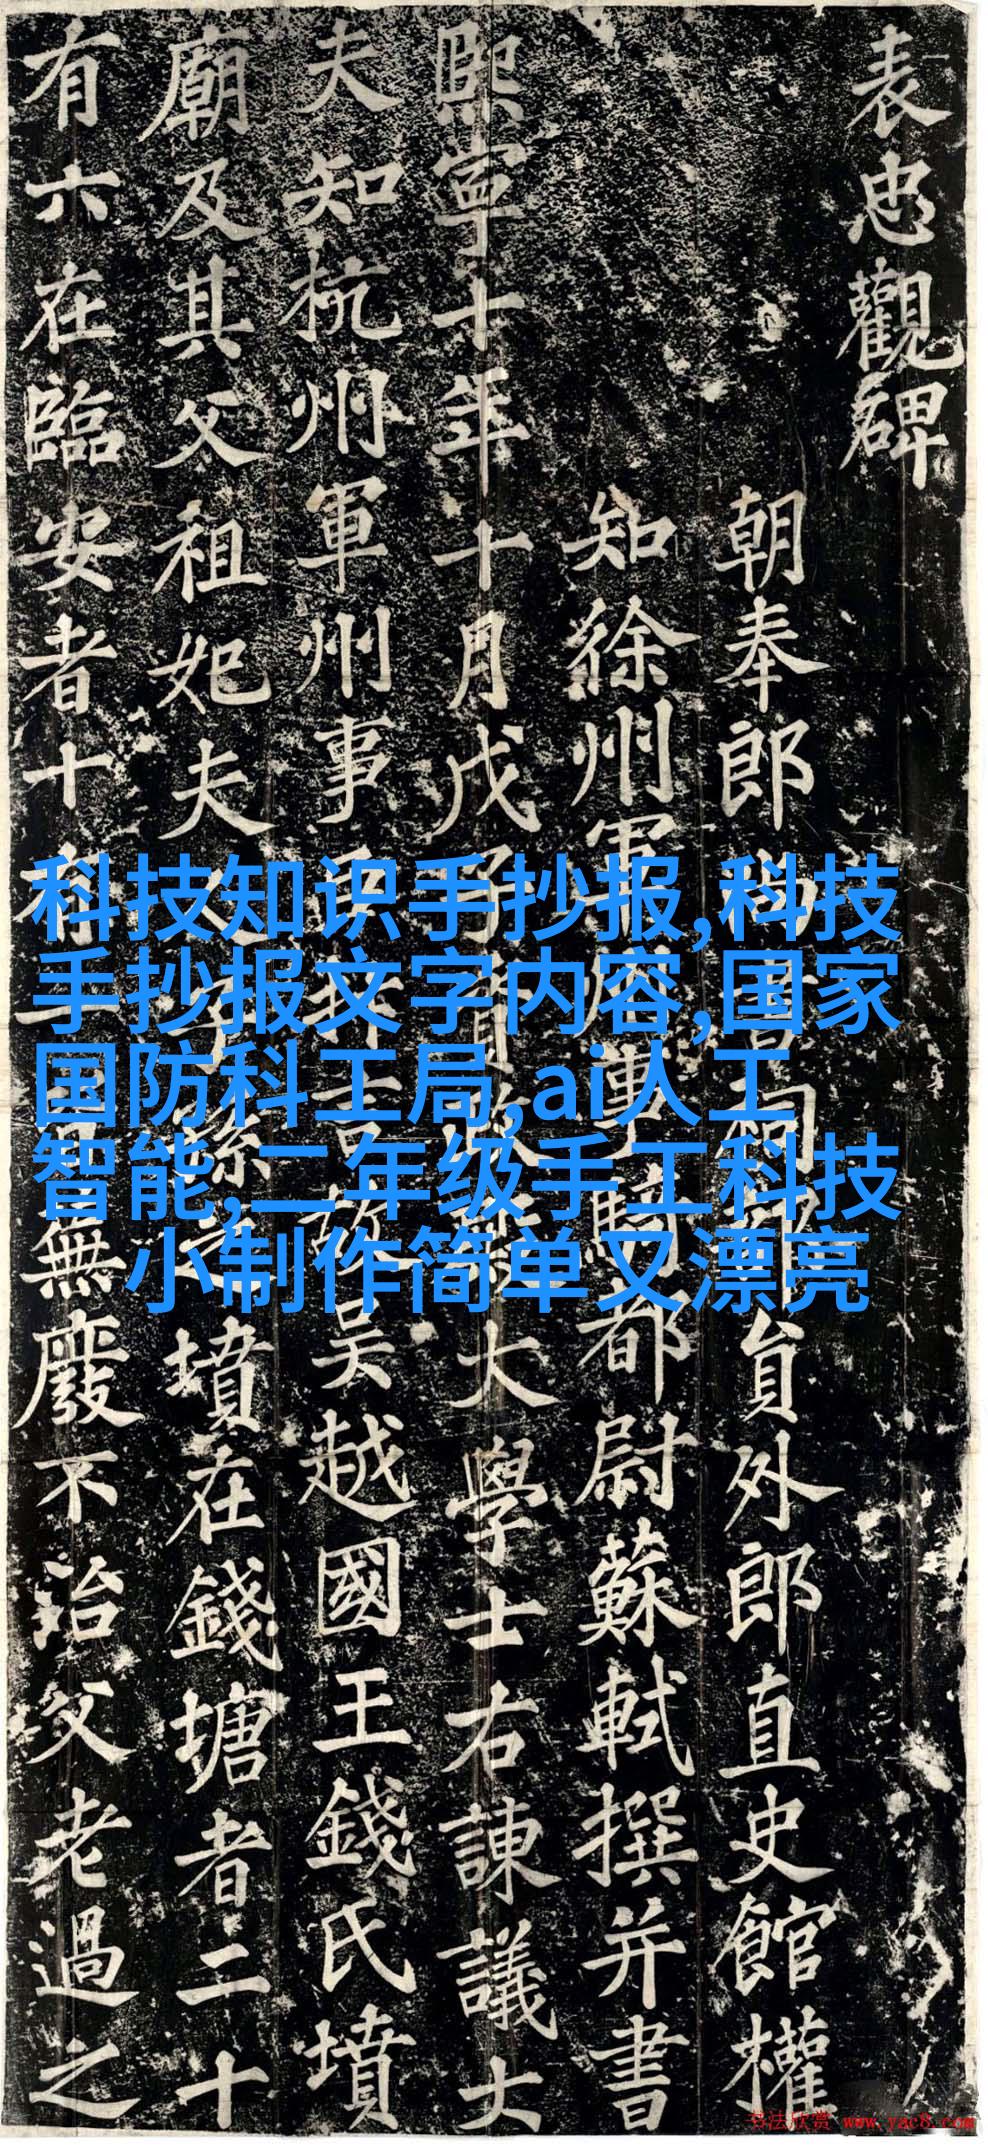 表忠觀碑
朝奉郎尚書祠部員外郎直史館權
知徐州軍州事騎都尉蘇軾撰并書
熙寧十年十月戊子資政殿大學士右諫議大
夫知杭州軍州事臣抃言故吳越國王錢氏墳
廟及其父祖妃夫人子孫之墳在錢塘者二十
有六在臨安者十有一皆蕪廢不治父老過之
科技知识手抄报,科技
手抄报文字内容,国家
国防科工局,ai人工
智能,二年级手工科技
小制作简单又漂亮
书法欣赏 www.yac8.com